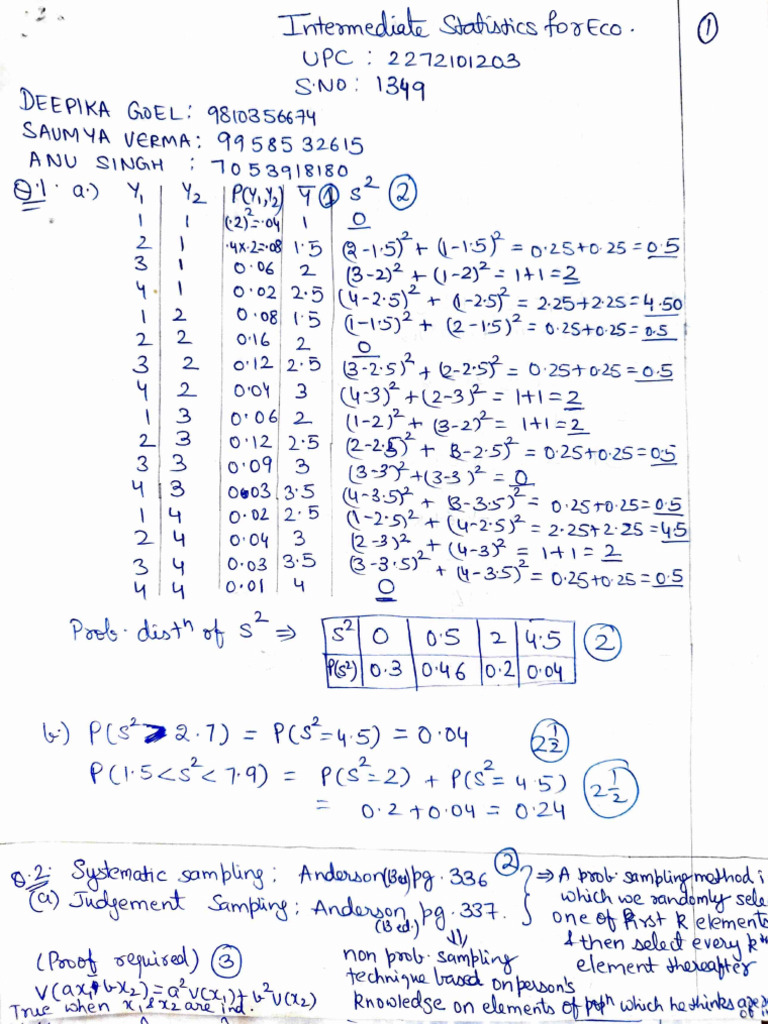 Intermediate Statistics for Eco. ①
UPC : 2272101203
S.NO: 1349
DEEPIKA GOEL: 9810356674
SAUMYA VERMA: 9958532615
ANU SINGH : 7053918180
Q.1. a.) Y₁ Y₂ P(Y₁,Y₂) Ȳ ① S² ②
1 1 (.2)²=.04 1 0
2 1 .4x.2=.08 1.5 (2-1.5)² + (1-1.5)² = 0.25+0.25 = 0.5
3 1 0.06 2 (3-2)² + (1-2)² = 1+1 = 2
4 1 0.02 2.5 (4-2.5)² + (1-2.5)² = 2.25+2.25 = 4.50
1 2 0.08 1.5 (1-1.5)² + (2-1.5)² = 0.25+0.25 = 0.5
2 2 0.16 2 0
3 2 0.12 2.5 (3-2.5)² + (2-2.5)² = 0.25+0.25 = 0.5
4 2 0.04 3 (4-3)² + (2-3)² = 1+1 = 2
1 3 0.06 2 (1-2)² + (3-2)² = 1+1 = 2
2 3 0.12 2.5 (2-2.5)² + (3-2.5)² = 0.25+0.25 = 0.5
3 3 0.09 3 (3-3)² + (3-3)² = 0
4 3 0.03 3.5 (4-3.5)² + (3-3.5)² = 0.25+0.25 = 0.5
1 4 0.02 2.5 (1-2.5)² + (4-2.5)² = 2.25+2.25 = 4.5
2 4 0.04 3 (2-3)² + (4-3)² = 1+1 = 2
3 4 0.03 3.5 (3-3.5)² + (4-3.5)² = 0.25+0.25 = 0.5
4 4 0.01 4 0
Prob. distⁿ of S² ⇒ S² 0 0.5 2 4.5 ②
P(S²) 0.3 0.46 0.2 0.04
b.) P(S² > 2.7) = P(S²=4.5) = 0.04 2½
P(1.5<S²<7.9) = P(S²=2) + P(S²=4.5) 2½
= 0.2+0.04 = 0.24
Q.2: Systematic sampling: Anderson (13 ed) pg. 336 ② ⇒ A prob. sampling method i
(a) Judgement Sampling: Anderson (13 ed.) pg. 337. which we randomly sele
one of first k elements
& then select every kth
element thereafter
⇓
non prob. sampling
technique based on person's
knowledge on elements of popⁿ which he thinks are
(Proof required) ③
V(ax₁+bx₂)=a²V(x₁)+b²V(x₂)
True when x₁ & x₂ are ind.